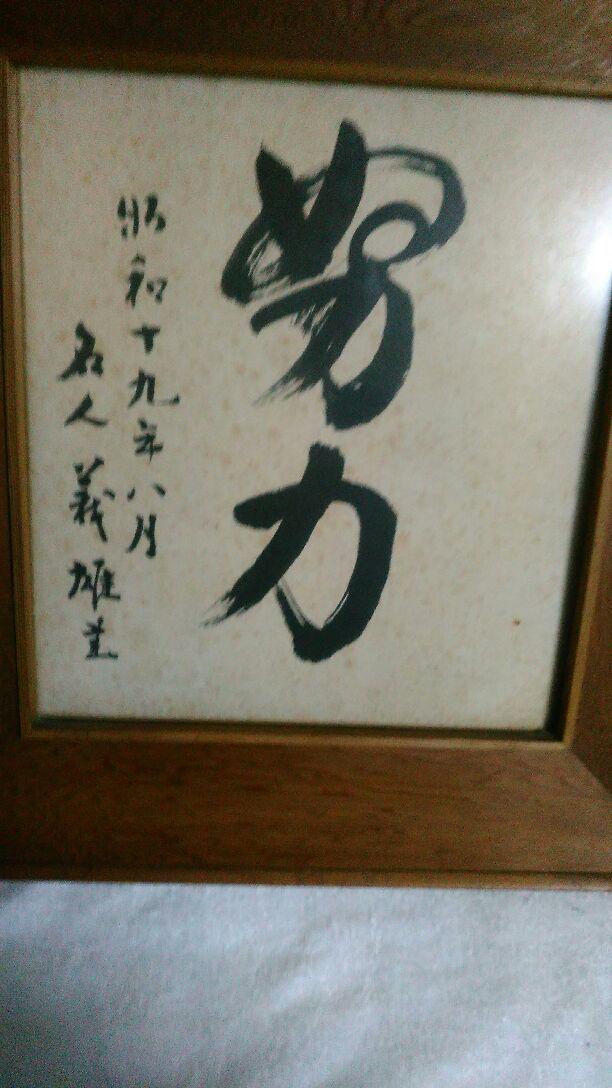 努力
昭和十九年八月
名人 義雄書